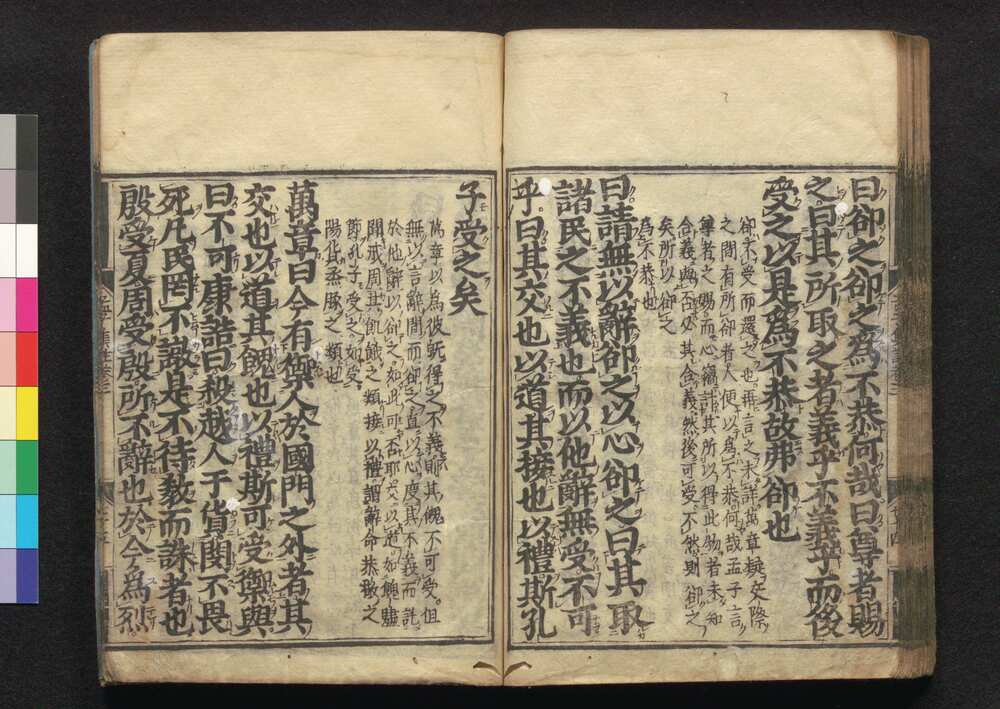 曰卻之卻之爲不恭何哉曰尊者賜
之曰其所取之者義乎不義乎而後
受之以是爲不恭故弗卻也
卻不受而還之也再言之未詳萬章疑交際
之間有所卻者人便以爲不恭何哉孟子言
尊者之賜而心竊計其所以得此物者未知
合義與否必其合義然後可受不然則卻之
矣所以卻之
爲不恭也
曰請無以辭卻之以心卻之曰其取
諸民之不義也而以他辭無受不可
乎曰其交也以道其接也以禮斯孔
子受之矣
萬章以爲彼旣得之不義則其餽不可受但
無以言辭間而卻之直以心度其不義而託
於他辭以卻之如此可否耶交以道如餽贐
聞戒周其飢餓之類接以禮謂辭命恭敬之
節孔子受之如受
陽貨烝豚之類也
萬章曰今有禦人於國門之外者其
交也以道其餽也以禮斯可受禦與
曰不可康誥曰殺越人于貨閔不畏
死凡民罔不譈是不待敎而誅者也
殷受夏周受殷所不辭也於今爲烈